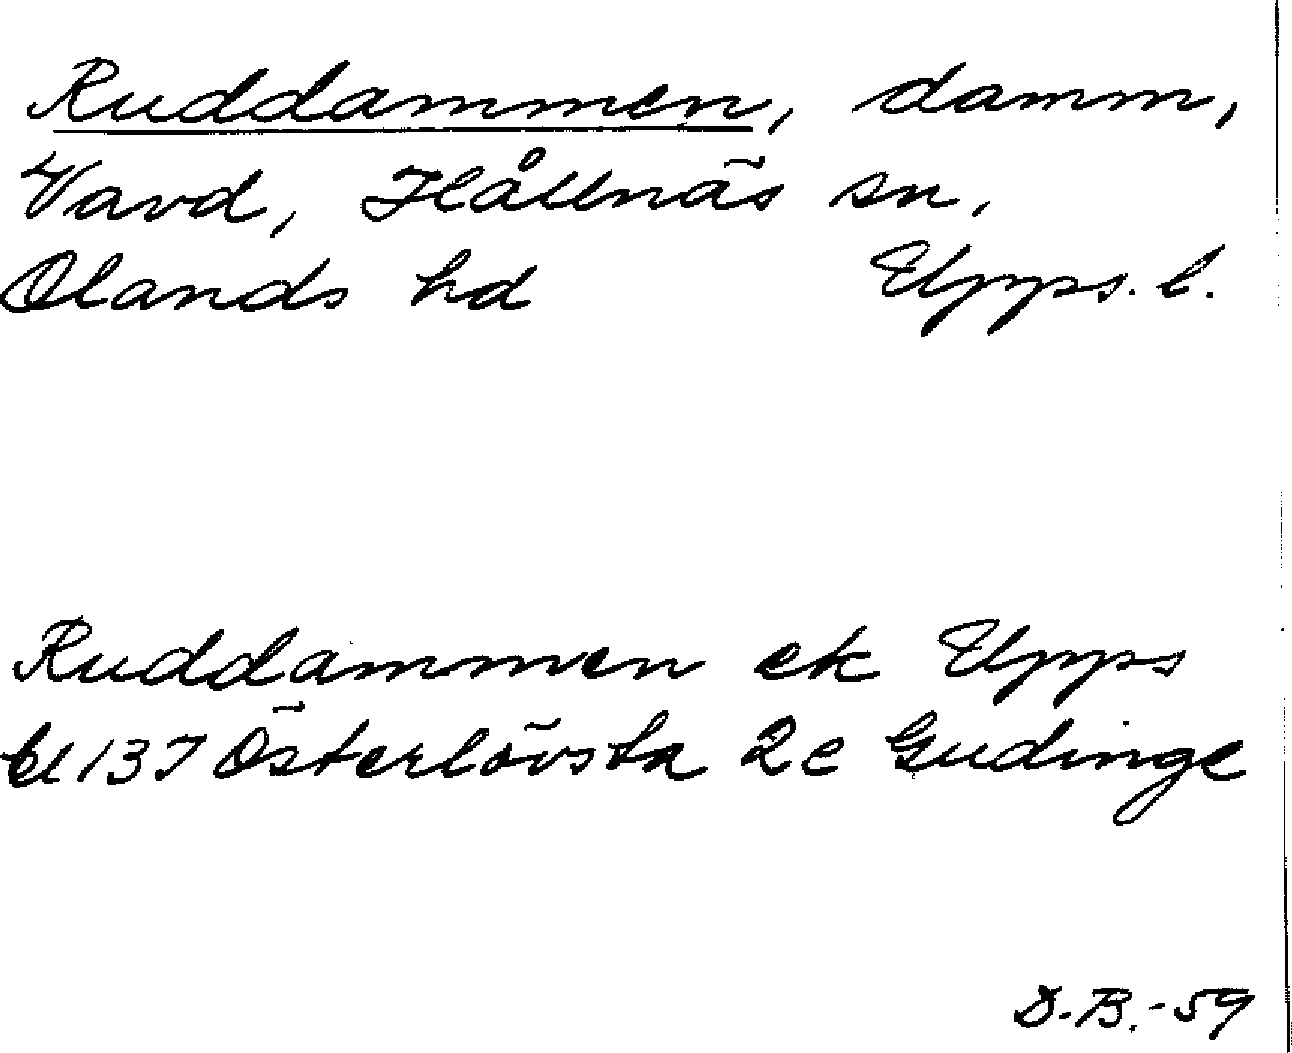 Ruddammen, damm,
Vavd, Hållnäs sn,
Olands hd Upps. l.
Ruddammen ek Upps
bl 137 Österlövsta 2e Gudinge
D.B.-59